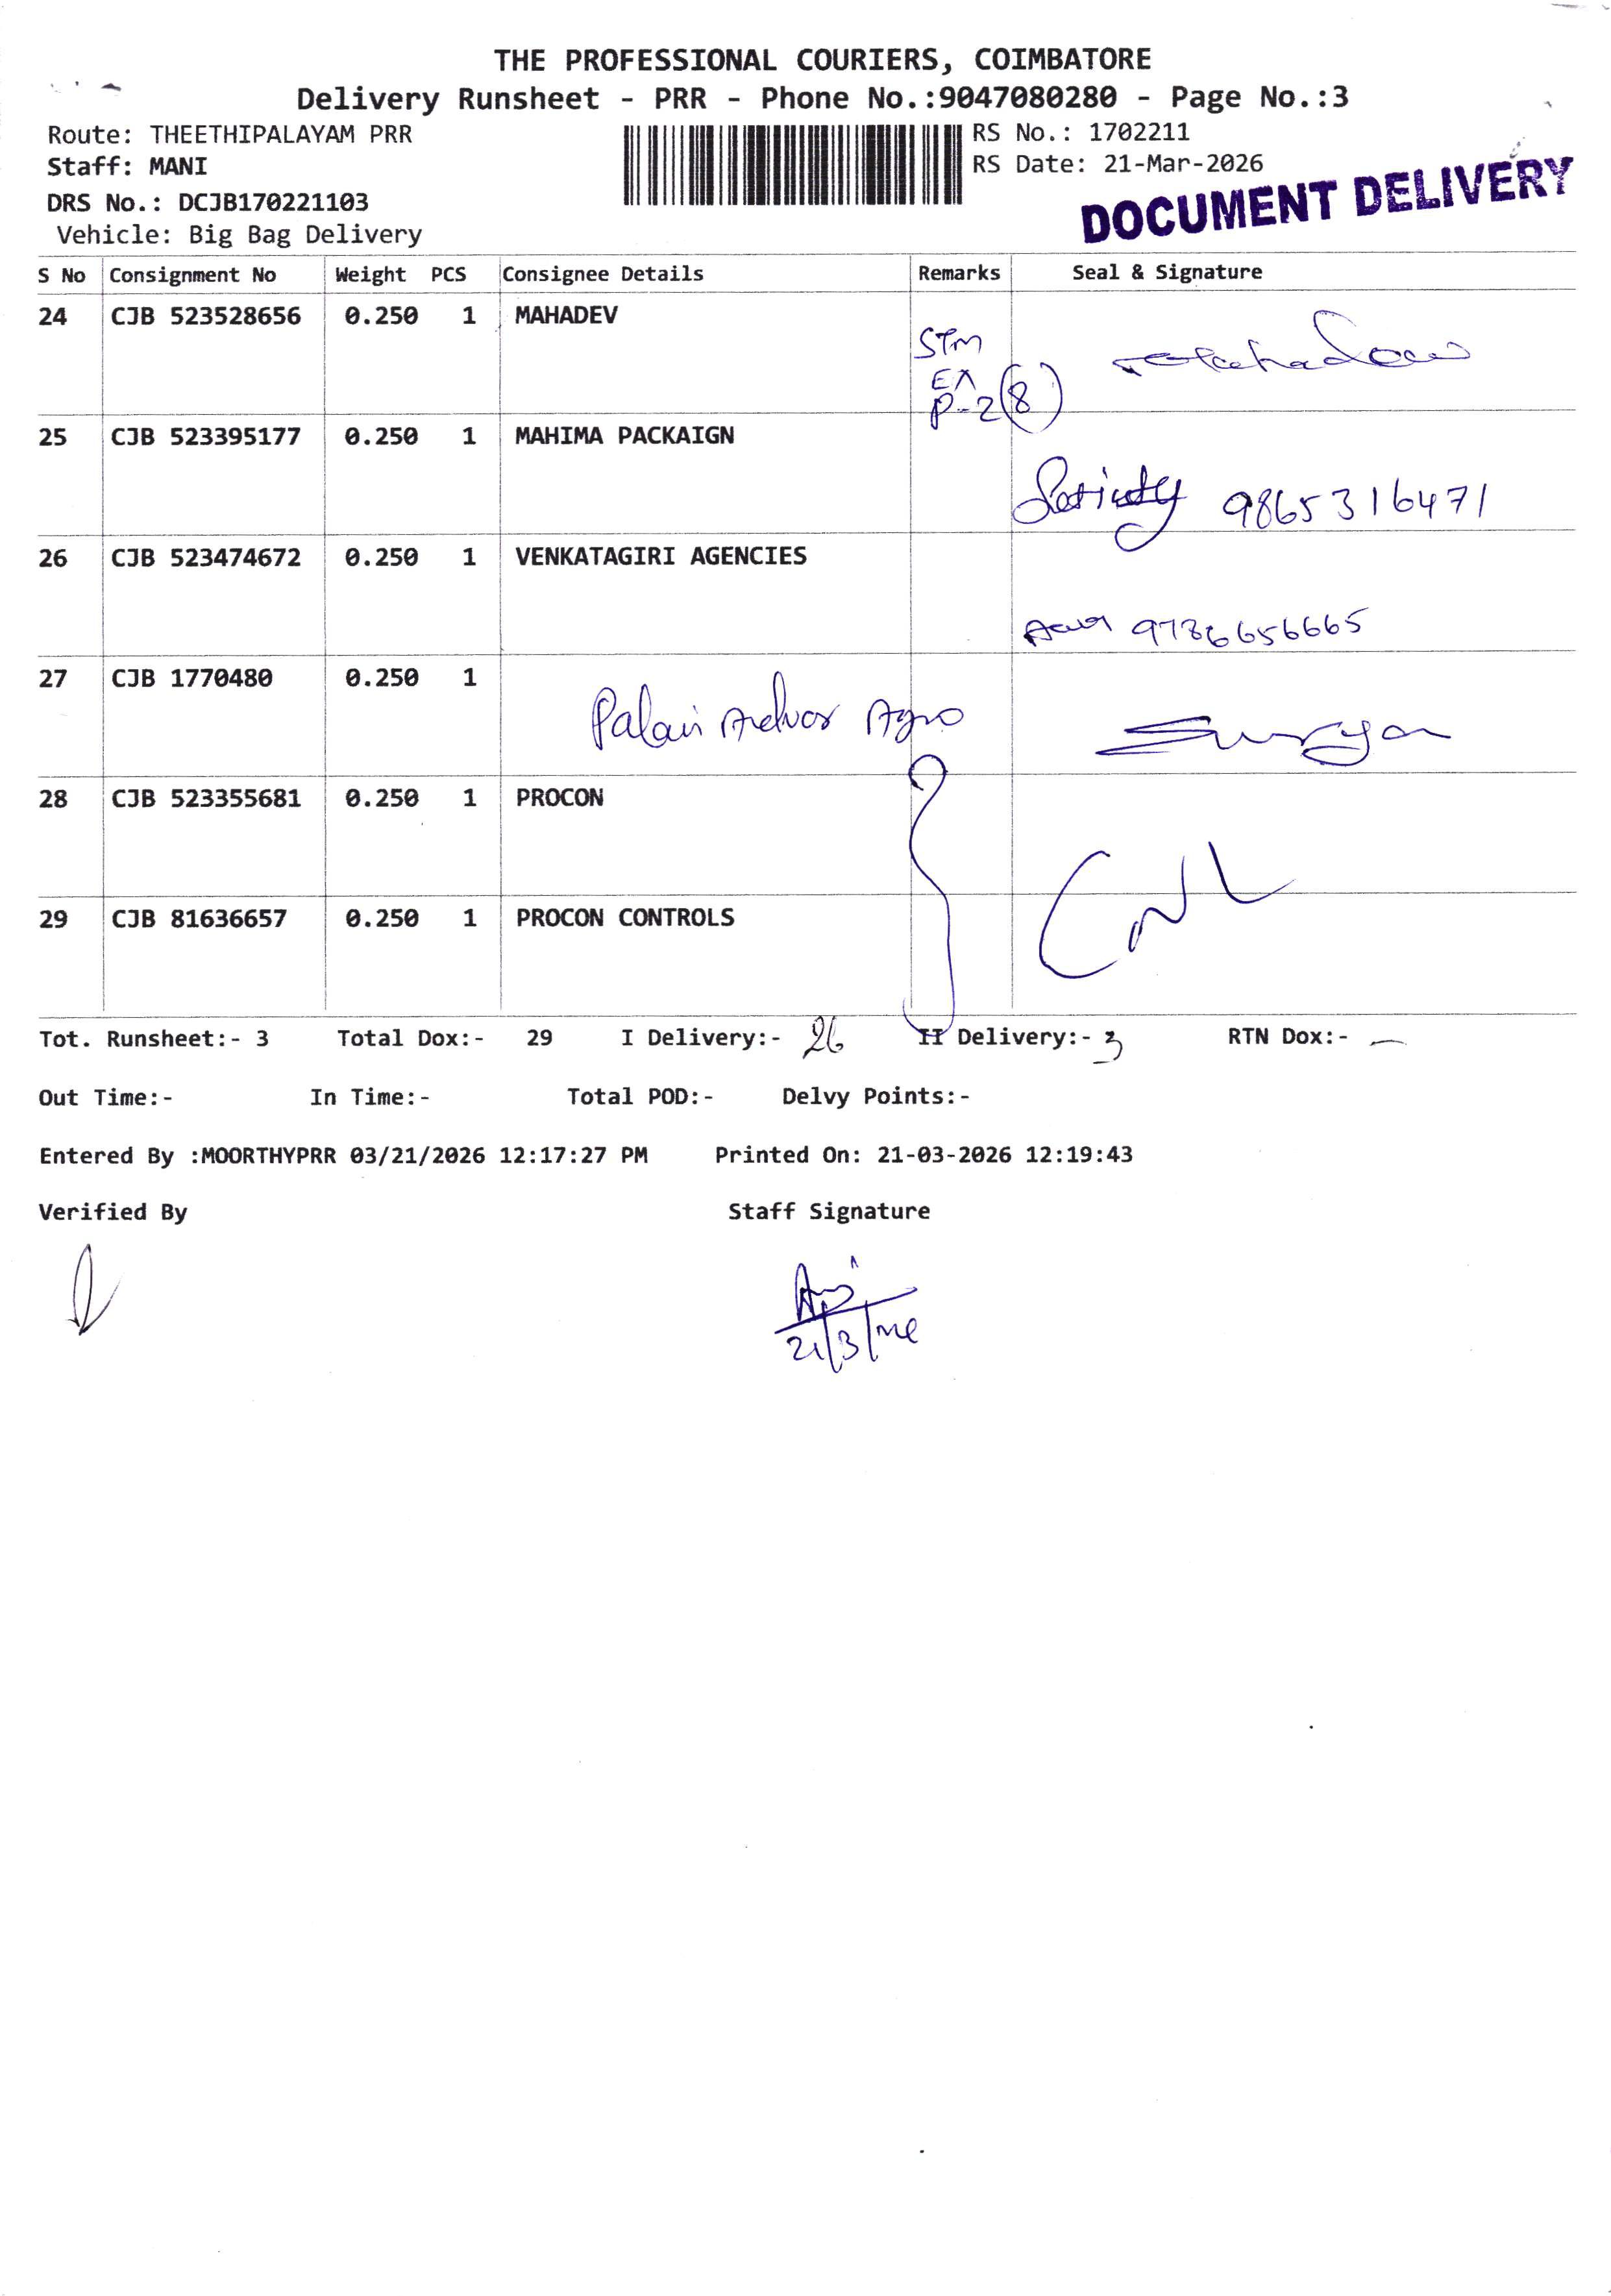 THE PROFESSIONAL COURIERS, COIMBATORE
Delivery Runsheet - PRR - Phone No.:9047080280 - Page No.:3
Route: THEETHIPALAYAM PRR
RS No.: 1702211
Staff: MANI
RS Date: 21-Mar-2026
DOCUMENT DELIVERY
DRS No.: DCJB170221103
Vehicle: Big Bag Delivery
S No Consignment No Weight PCS Consignee Details Remarks Seal & Signature
24 CJB 523528656 0.250 1 MAHADEV
STM
P-2 (8)
25 CJB 523395177 0.250 1 MAHIMA PACKAIGN
9865316471
26 CJB 523474672 0.250 1 VENKATAGIRI AGENCIES
9786656665
27 CJB 1770480 0.250 1
Agro
28 CJB 523355681 0.250 1 PROCON
29 CJB 81636657 0.250 1 PROCON CONTROLS
Tot. Runsheet:- 3 Total Dox:- 29 I Delivery:- 26 II Delivery:- 3 RTN Dox:- —
Out Time:- In Time:- Total POD:- Delvy Points:-
Entered By :MOORTHYPRR 03/21/2026 12:17:27 PM Printed On: 21-03-2026 12:19:43
Verified By Staff Signature